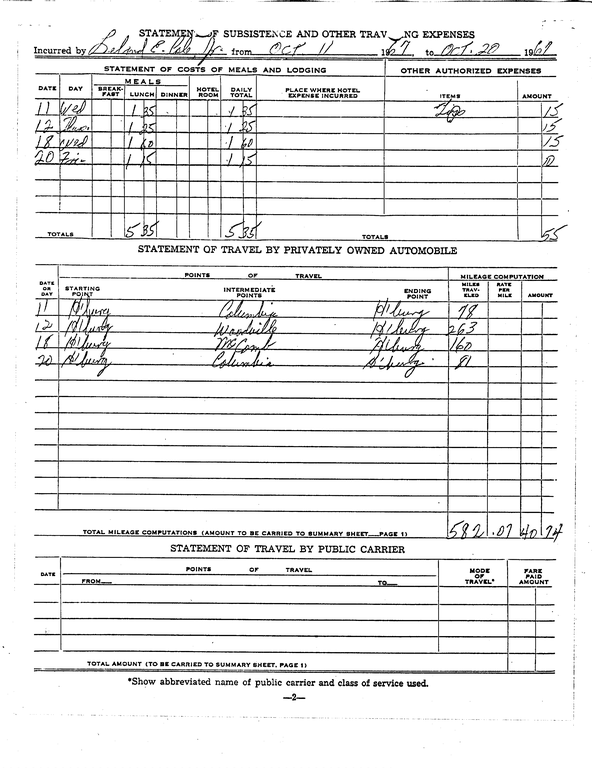 STATEMEN OF SUBSISTENCE AND OTHER TRAV NG EXPENSES
Incurred by E. Jr. from OCT 11 1967 to OCT. 20 1967
STATEMENT OF COSTS OF MEALS AND LODGING OTHER AUTHORIZED EXPENSES
DATE DAY MEALS BREAK-FAST LUNCH DINNER HOTEL ROOM DAILY TOTAL PLACE WHERE HOTEL EXPENSE INCURRED ITEMS AMOUNT
11 Wed 1 35 1 35 15
12 Thur 1 25 1 25 15
18 Wed 1 60 1 60 15
20 Fri- 1 15 1 15 10
TOTALS 5 35 5 35 TOTALS 55
STATEMENT OF TRAVEL BY PRIVATELY OWNED AUTOMOBILE
DATE OR DAY POINTS OF TRAVEL MILEAGE COMPUTATION
STARTING POINT INTERMEDIATE POINTS ENDING POINT MILES TRAV-ELED RATE PER MILE AMOUNT
11 H'burg Columbia H'burg 78
12 H'burg Woodville H'burg 263
18 H'burg McComb H'burg 160
20 H'burg Columbia H'burg 81
TOTAL MILEAGE COMPUTATIONS (AMOUNT TO BE CARRIED TO SUMMARY SHEET PAGE 1) 582 .07 40 74
STATEMENT OF TRAVEL BY PUBLIC CARRIER
DATE POINTS OF TRAVEL MODE OF TRAVEL* FARE PAID AMOUNT
FROM TO
TOTAL AMOUNT (TO BE CARRIED TO SUMMARY SHEET, PAGE 1)
*Show abbreviated name of public carrier and class of service used.
—2—